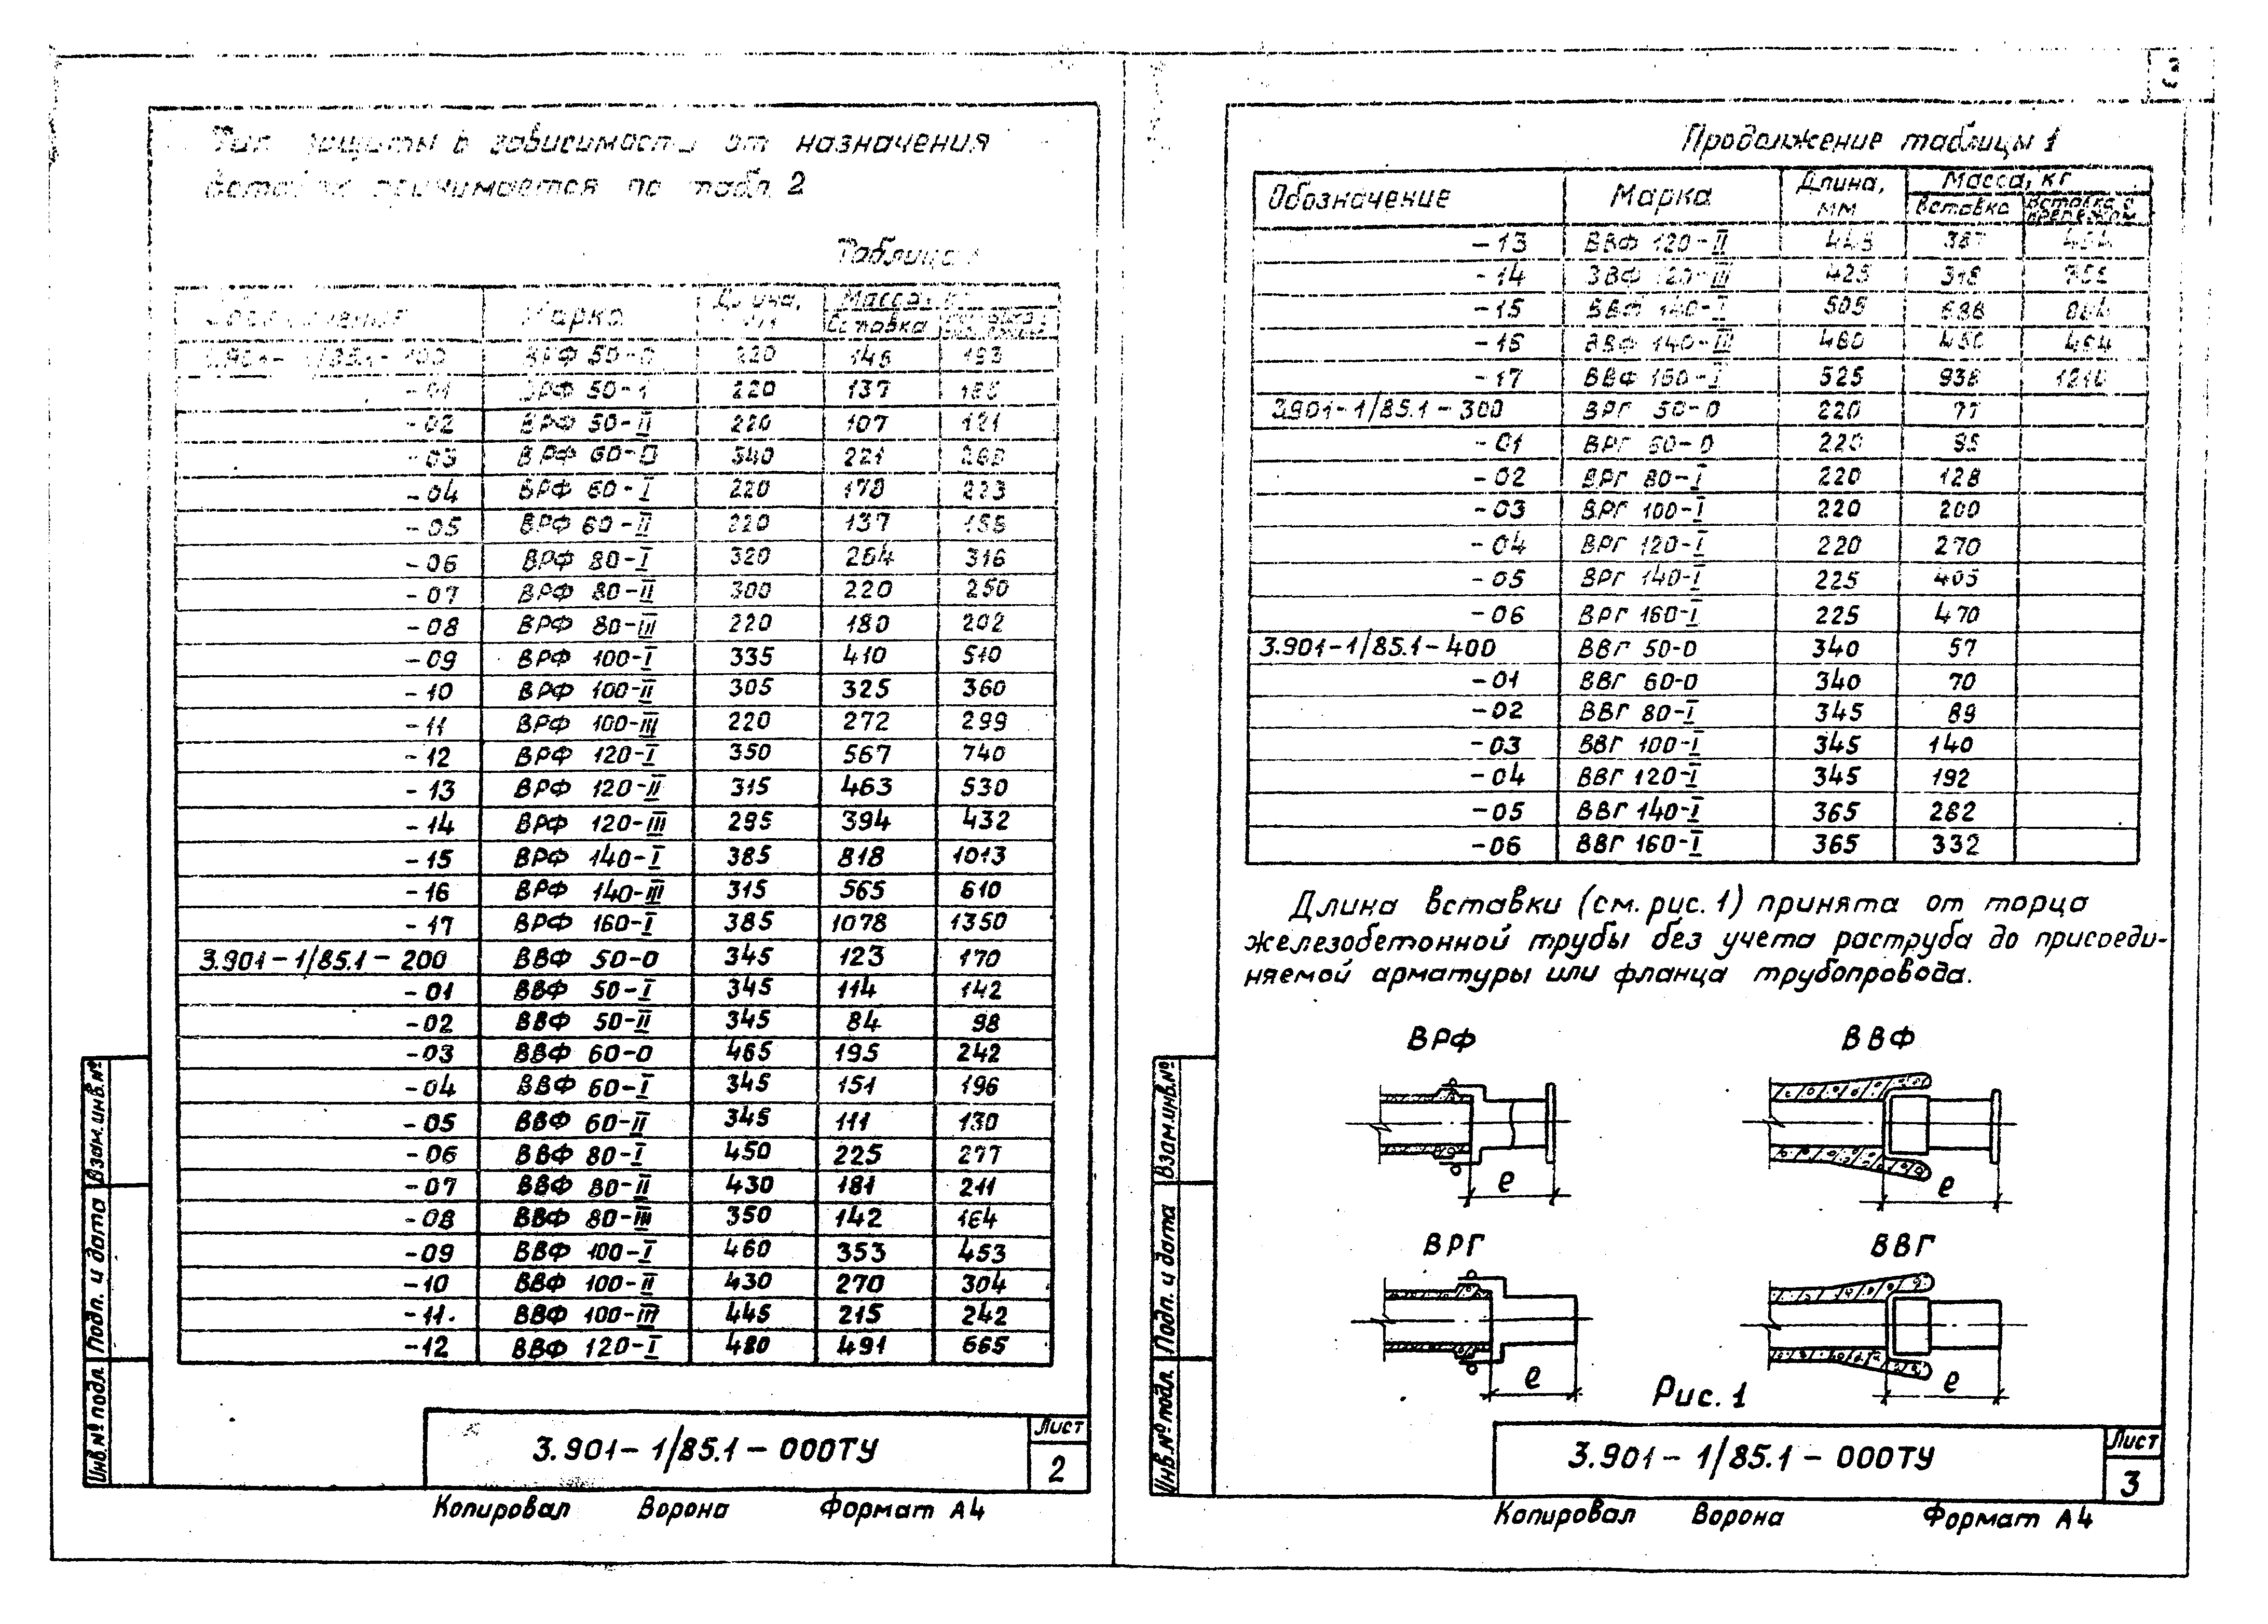 Тип защиты в зависимости от назначения
вставок принимается по табл. 2
Таблица 1
Обозначение Марка Длина, мм Масса, кг
Вставка
3.901-1/85.1-100 ВРФ 50-0 220 146 193
-01 ВРФ 50-I 220 137
-02 ВРФ 50-II 220 107 121
-03 ВРФ 60-0 340 221 268
-04 ВРФ 60-I 220 178 223
-05 ВРФ 60-II 220 137 156
-06 ВРФ 80-I 320 264 316
-07 ВРФ 80-II 300 220 250
-08 ВРФ 80-III 220 180 202
-09 ВРФ 100-I 335 410 510
-10 ВРФ 100-II 305 325 360
-11 ВРФ 100-III 220 272 299
-12 ВРФ 120-I 350 567 740
-13 ВРФ 120-II 315 463 530
-14 ВРФ 120-III 295 394 432
-15 ВРФ 140-I 385 818 1013
-16 ВРФ 140-III 315 565 610
-17 ВРФ 160-I 385 1078 1350
3.901-1/85.1-200 ВВФ 50-0 345 123 170
-01 ВВФ 50-I 345 114 142
-02 ВВФ 50-II 345 84 98
-03 ВВФ 60-0 465 195 242
-04 ВВФ 60-I 345 151 196
-05 ВВФ 60-II 345 111 130
-06 ВВФ 80-I 450 225 277
-07 ВВФ 80-II 430 181 211
-08 ВВФ 80-III 350 142 164
-09 ВВФ 100-I 460 353 453
-10 ВВФ 100-II 430 270 304
-11. ВВФ 100-III 445 215 242
-12 ВВФ 120-I 480 491 665
Взам.инв.№
Подп. и дата
Инв.№ подл.
3.901-1/85.1-000ТУ
Лист
2
Копировал Ворона Формат А4
Продолжение таблицы 1
Обозначение Марка Длина, мм Масса, кг
Вставка Вставка с крепежом
-13 ВВФ 120-II 445 387 454
-14 ВВФ 120-III 425 318
-15 ВВФ 140-I 505 688 884
-16 ВВФ 140-III 460 450 464
-17 ВВФ 160-I 525 938 1210
3.901-1/85.1-300 ВРГ 50-0 220 77
-01 ВРГ 60-0 220 95
-02 ВРГ 80-I 220 128
-03 ВРГ 100-I 220 200
-04 ВРГ 120-I 220 270
-05 ВРГ 140-I 225 405
-06 ВРГ 160-I 225 470
3.901-1/85.1-400 ВВГ 50-0 340 57
-01 ВВГ 60-0 340 70
-02 ВВГ 80-I 345 89
-03 ВВГ 100-I 345 140
-04 ВВГ 120-I 345 192
-05 ВВГ 140-I 365 282
-06 ВВГ 160-I 365 332
Длина вставки (см. рис. 1) принята от торца
железобетонной трубы без учета раструба до присоеди-
няемой арматуры или фланца трубопровода.
ВРФ ВВФ
ℓ ℓ
ВРГ ВВГ
ℓ ℓ
Рис. 1
Взам.инв.№
Подп. и дата
Инв.№ подл.
3.901-1/85.1-000ТУ
Лист
3
Копировал Ворона Формат А4